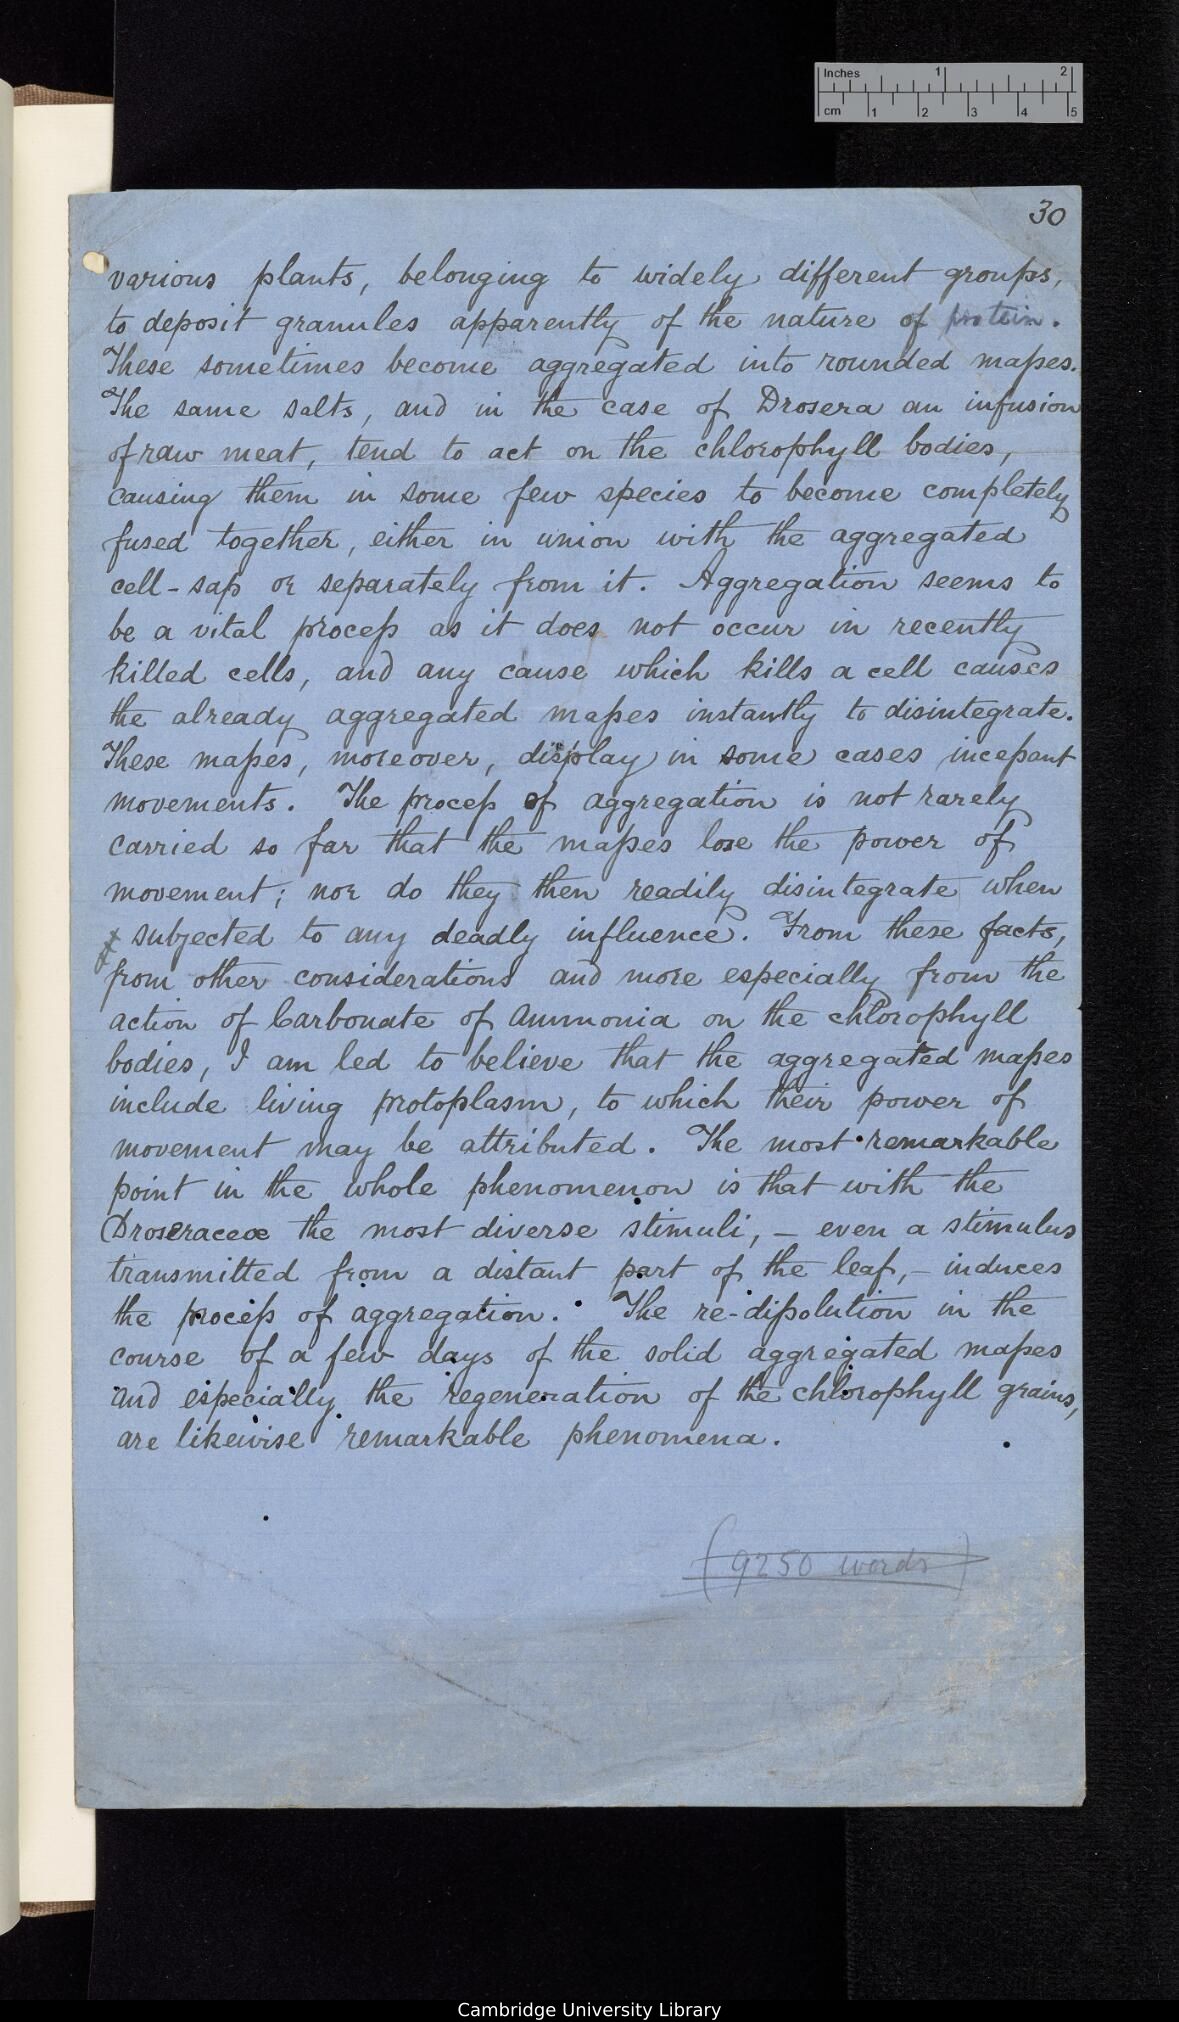 Inches 1 2
cm 1 2 3 4 5
30
various plants, belonging to widely different groups,
to deposit granules apparently of the nature of protein.
These sometimes become aggregated into rounded masses.
The same salts, and in the case of Drosera an infusion
of raw meat, tend to act on the chlorophyll bodies,
causing them in some few species to become completely
fused together, either in union with the aggregated
cell-sap or separately from it. Aggregation seems to
be a vital process as it does not occur in recently
killed cells, and any cause which kills a cell causes
the already aggregated masses instantly to disintegrate.
These masses, moreover, display in some cases incessant
movements. The process of aggregation is not rarely
carried so far that the masses lose the power of
movement; nor do they then readily disintegrate when
subjected to any deadly influence. From these facts,
from other considerations and more especially from the
action of Carbonate of Ammonia on the chlorophyll
bodies, I am led to believe that the aggregated masses
include living protoplasm, to which their power of
movement may be attributed. The most remarkable
point in the whole phenomenon is that with the
Droseraceæ the most diverse stimuli, – even a stimulus
transmitted from a distant part of the leaf, – induces
the process of aggregation. The re-dissolution in the
course of a few days of the solid aggregated masses
and especially the regeneration of the chlorophyll grains,
are likewise remarkable phenomena.
(9250 words)
Cambridge University Library